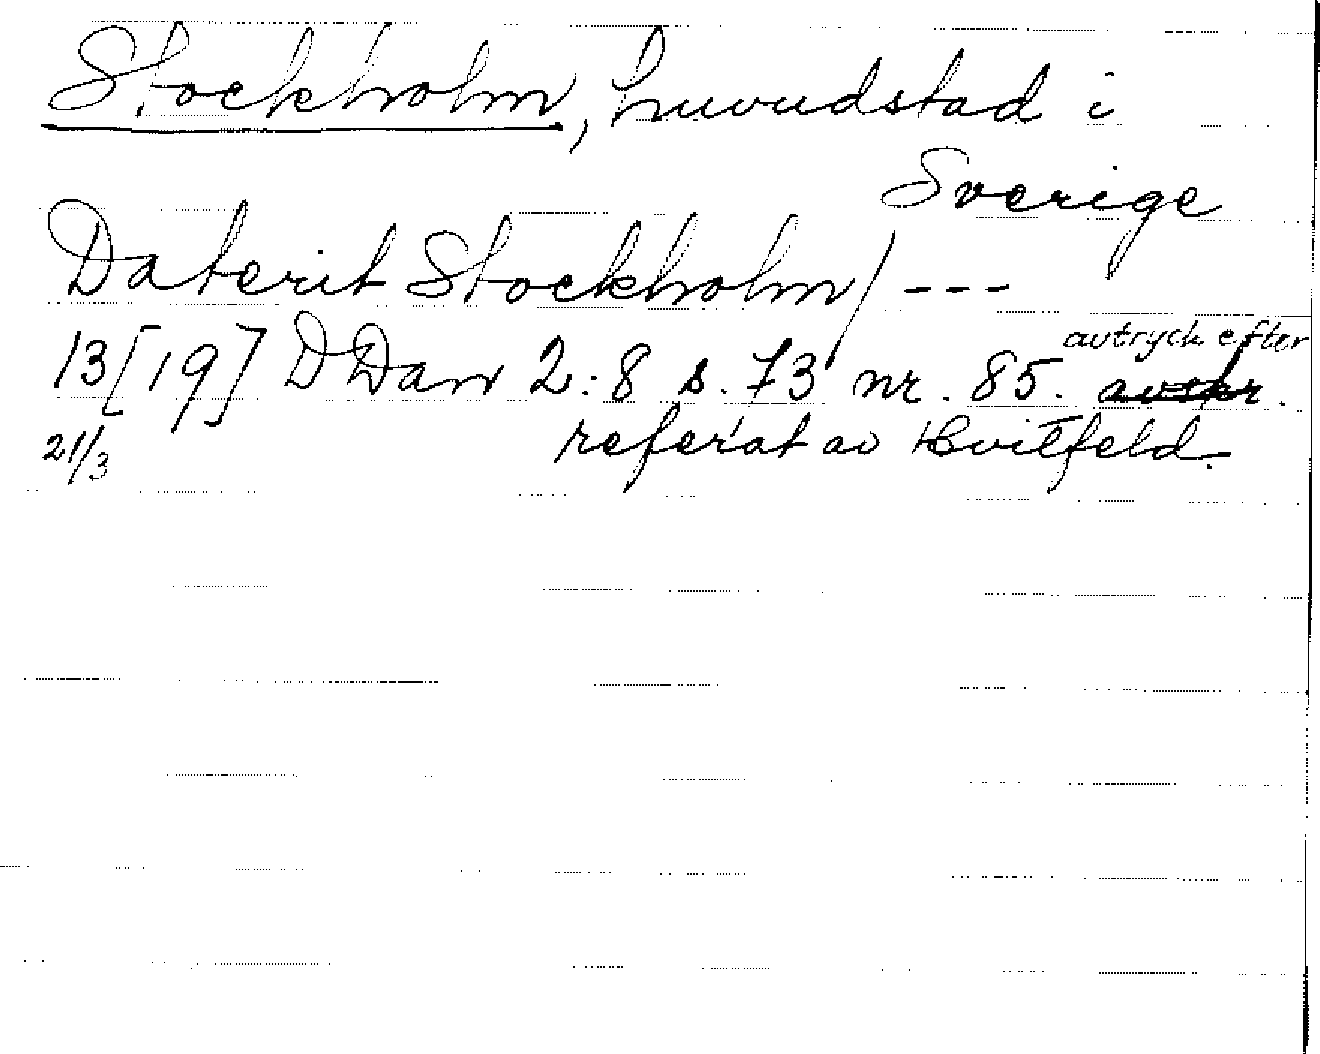 Stockholm, huvudstad i
Sverige
Daterit Stockholm/ ---
avtryck efter
13[19] DDan 2:8 s. 73 nr. 85.
21/3 referat av Hvitfeld.